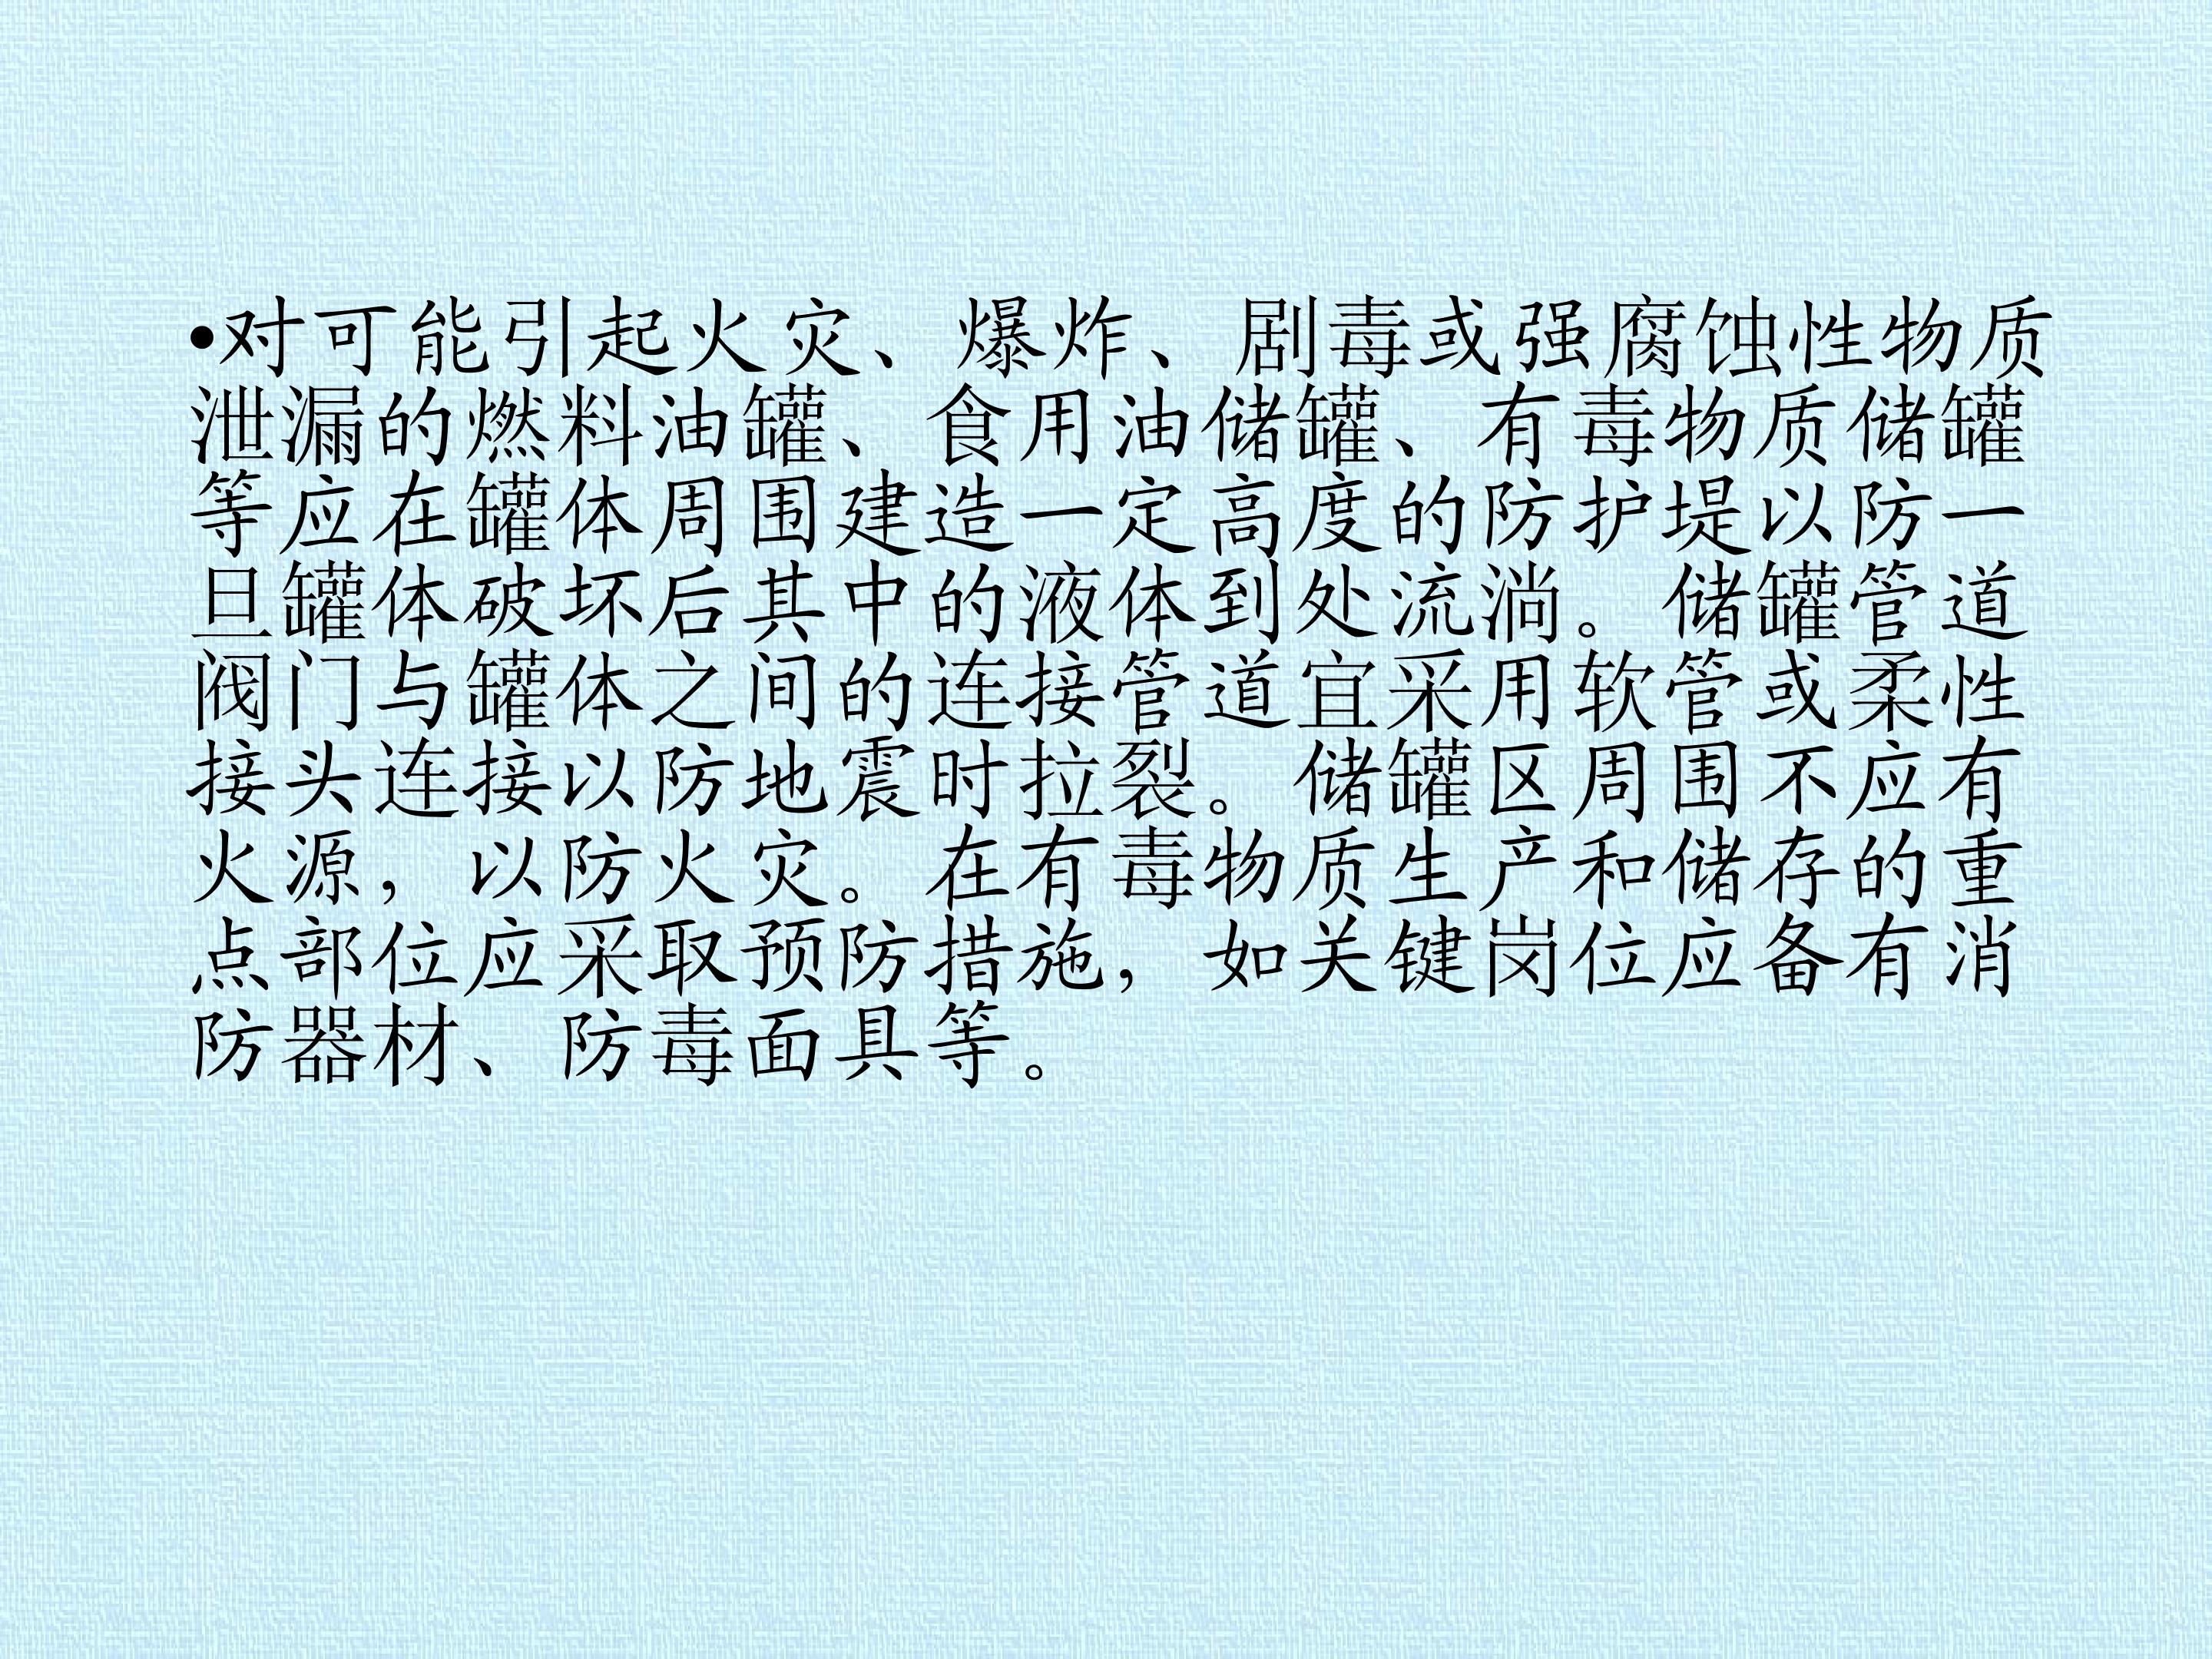 •对可能引起火灾、爆炸、剧毒或强腐蚀性物质
泄漏的燃料油罐、食用油储罐、有毒物质储罐
等应在罐体周围建造一定高度的防护堤以防一
旦罐体破坏后其中的液体到处流淌。储罐管道
阀门与罐体之间的连接管道宜采用软管或柔性
接头连接以防地震时拉裂。储罐区周围不应有
火源，以防火灾。在有毒物质生产和储存的重
点部位应采取预防措施，如关键岗位应备有消
防器材、防毒面具等。